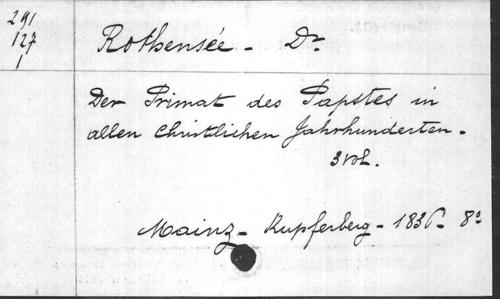 291
127
1
Rothensée - Dr.
Der Primat des Papstes in
allen Christlichen Jahrhunderten.
3 vol.
Mainz - Kupferberg - 1836 - 8°